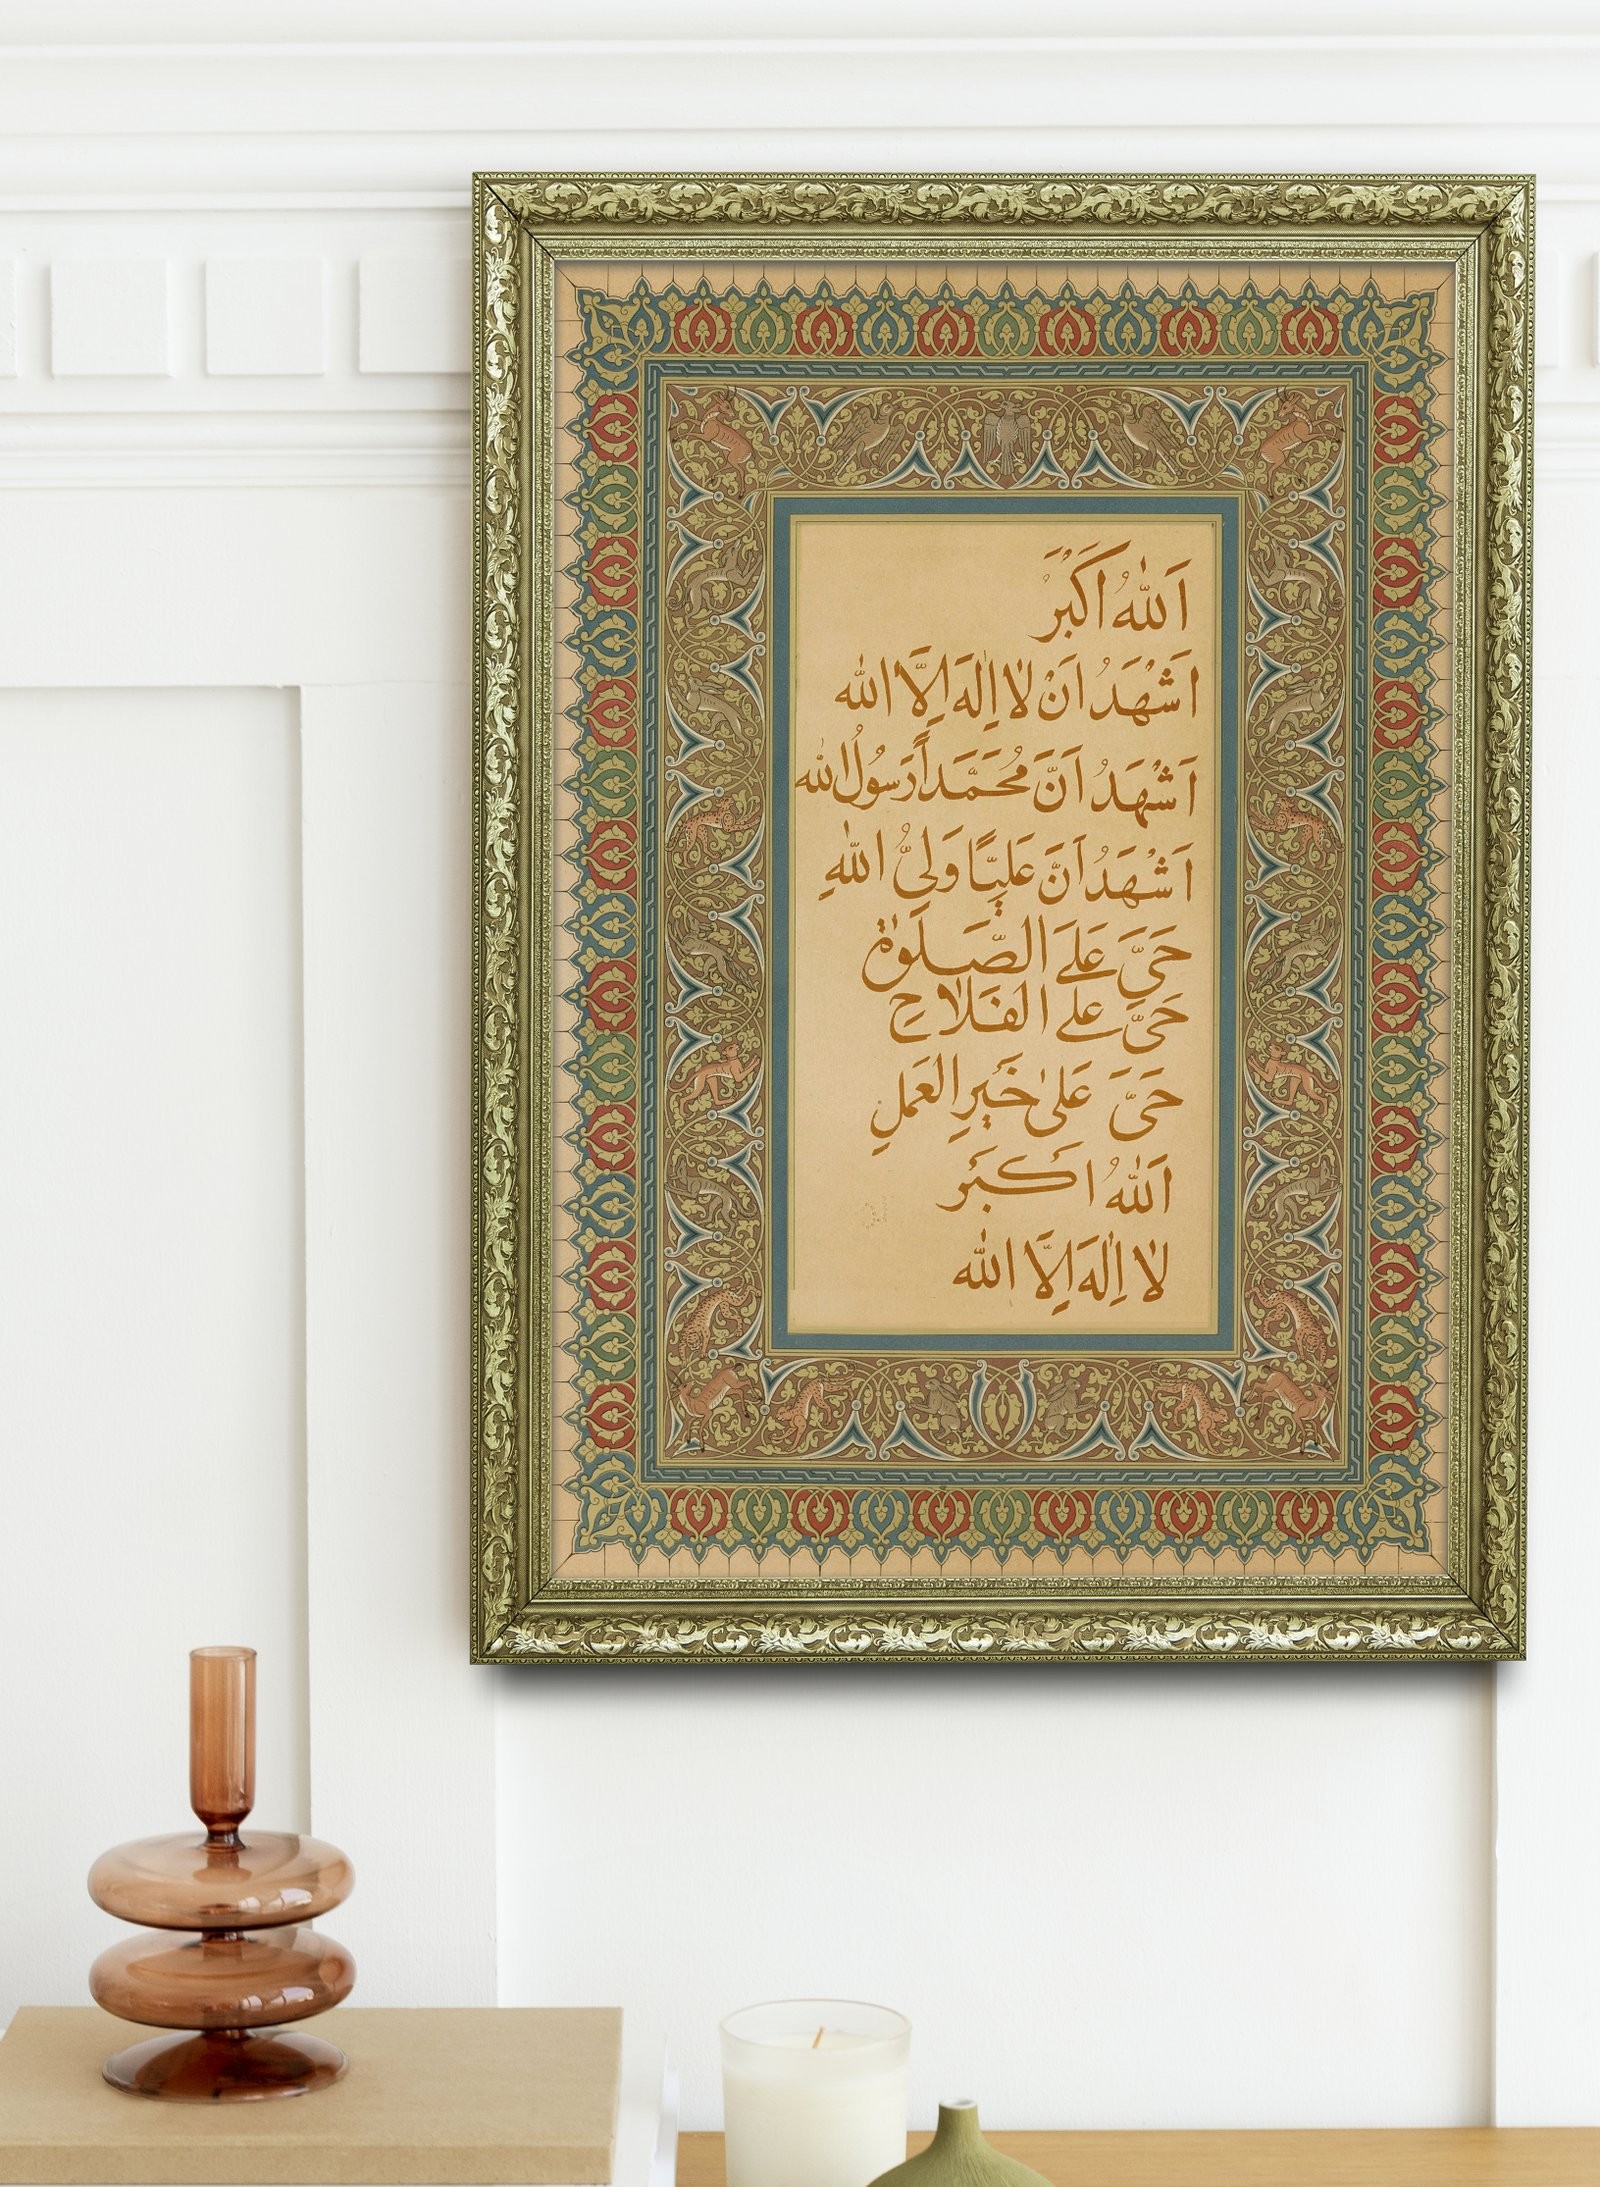 اَللهُ اَكْبَرْ
اَشْهَدُ اَنْ لا اِلٰهَ اِلَّا الله
اَشْهَدُ اَنَّ مُحَمَّدًا رَسُولُ الله
اَشْهَدُ اَنَّ عَلِيًّا وَلِيُّ اللهِ
حَيَّ عَلَى الصَّلَوٰة
حَيَّ عَلى الفَلاحِ
حَيَّ عَلىٰ خَيْرِ العَمَلِ
اَللهُ اَكْبَر
لا اِلٰهَ اِلَّا الله